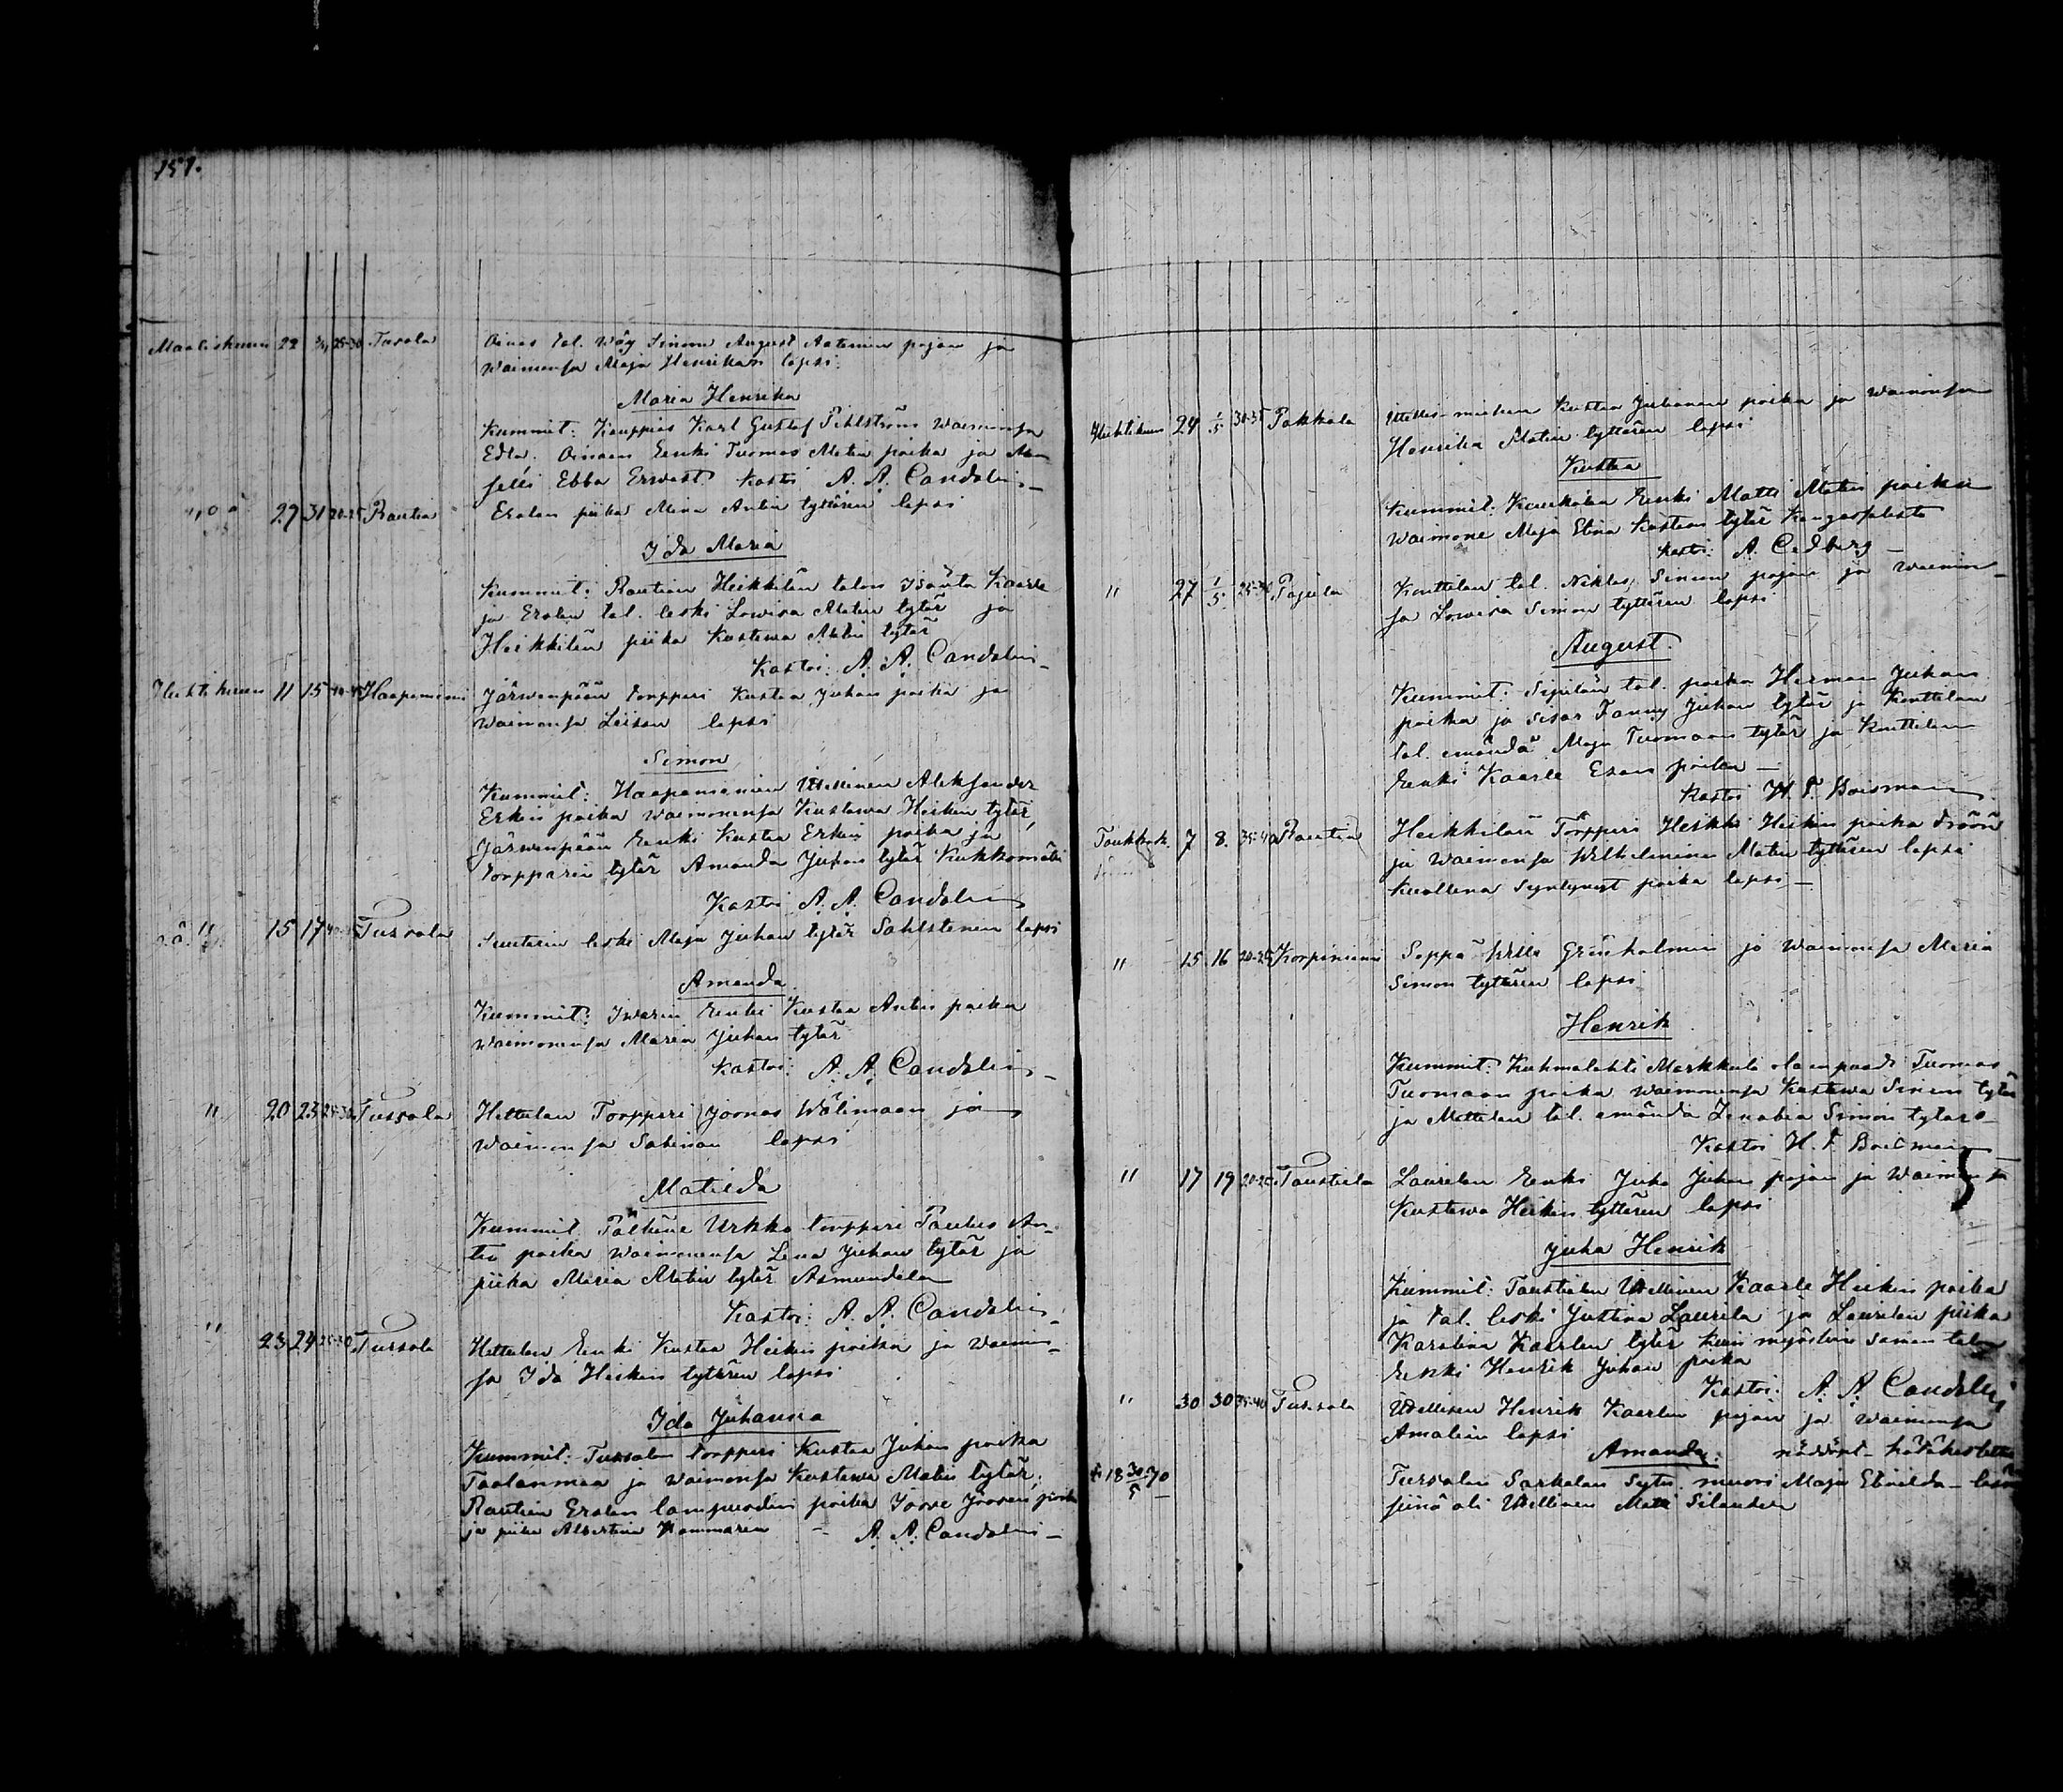 151.
Maaliskuun 22 25-30 Tarola Oinas tal. Wäy Simon August Antinin pojan ja
Waimonsa Maja Henrikan lapsi.
Maria Henrika
Kummit: Kauppias Karl Gustaf Pihlström Waimonsa
Edla. Oinaan Renki Tuomas Matin poika ja Mam-
selli Ebba Erwast Kastoi A. A. Candolin
27 31 20-25 Rautia Erolan piika Mina Antin tyttären lapsi
Ida Maria
Kummit: Rautian Heikkilän talon Isäntä Kaarle
ja Erolan tal. leski Lowisa Matin tytär ja
Heikkilän piika Kustawa Matin tytär
Kastoi: A. A. Candolin
Huhtikuun 11 15 40-45 Haapaniemi Järwenpään torppari Kustaa Juhan poika ja
Waimonsa Leisan lapsi
Simon
Kummit: Haapaniemen Itellinen Aleksander
Erkin poika Waimonensa Kustawa Heikin tytär,
Järwenpään Renki Kustaa Erkin poika ja
torpparin tytär Amanda Juhan tytär Kukkomäki
Kastoi A. A. Candolin
" 15 17 Tursola Suutarin leski Maja Juhan tytär Sahlstenin lapsi
Amanda
Kummit: Iwarin Renki Kustaa Antin poika
Waimonensa Maria Juhan tytär
Kastoi: A. A. Candolin
" 20 23 25-30 Tursola Hettulan Torppari Joonas Wälimaan ja
Waimonsa Sabinan lapsi
Matilda
Kummit Pälkäne Urkko torppari Paulus An-
tin poika Waimonensa Lena Juhan tytär ja
piika Maria Matin tytär Asmundela
Kastoi: A. A. Candolin
" 23 24 25-30 Tursola Hettulan Renki Kustaa Heikin poika ja Waimon-
sa Ida Heikin tyttären lapsi
Ida Juhanna
Kummit: Tursolan torppari Kustaa Juhan poika
Taalanmaa ja Waimonsa Kustawa Matin tytär,
Rautian Erolan lampuodin poika Joose Joosen poika
ja piika Albertina Kammarin A. A. Candolin
Huhtikuun 24 1/5 30-35 Pakkala Itellis-miehen Kustaa Juhanan poika ja Waimonsa
Henrika Matin tyttären lapsi
Kustaa
Kummit: Kaukolan Renki Matti Matin poika
Waimone Maja Stina Kustaan tytär Kangasalasta
Kastoi: A. Cedberg
" 27 1/5 25-30 Pajula Konttilan tal. Niklas Simon pojan ja Waimon-
sa Lowisa Simon tyttären lapsi
August.
Kummit: Sipilän tal. poika Herman Juhan
poika ja sisar Fanny Juhan tytär ja Konttilan
tal. emändä Maja Tuomaan tytär ja Konttilan
Renki Kaarle Esan poika
Kastoi H. F. Boisman
Toukokuun 7 8. 35-40 Rautia Heikkilän Torppari Heikki Heikin poika
ja Waimonsa Wilhelmina Matin tyttären lapsi
Kuollena syntynyt poika lapsi
" 15 16 20-25 Korpiniemi Seppä Wille Grönholmin ja Waimonsa Maria
Simon tyttären lapsi
Henrik
Kummit: Kuhmalahti Markkula olampuodi Tuomas
Tuomaan poika Waimonensa Kustawa Simon tytär
ja Mattilan tal. emändä Zenobia Simon tytär
Kastoi H. F. Boisman
" 17 19 20-25 Taustiala Laurilan Renki Juho Juhan pojan ja Waimonsa
Kustawa Heikin tyttären lapsi
Juha Henrik
Kummit: Taustialan Itellinen Kaarle Heikin poika
ja tal. leski Justina Laurila ja Laurilan piika
Karolina Kaarlen tytär kuin myöskin saman talon
Renki Henrik Juhan poika
Kastoi: A. A. Candolin
" 30 30 35-40 Tursola Itellisen Henrik Kaarlen pojan ja Waimonsa
Amalian lapsi
Amanda: hätäkastettu
† 18 30/5 70 Tursolan Sarkolan muori Maja
siinä oli Itellinen Matti Silander